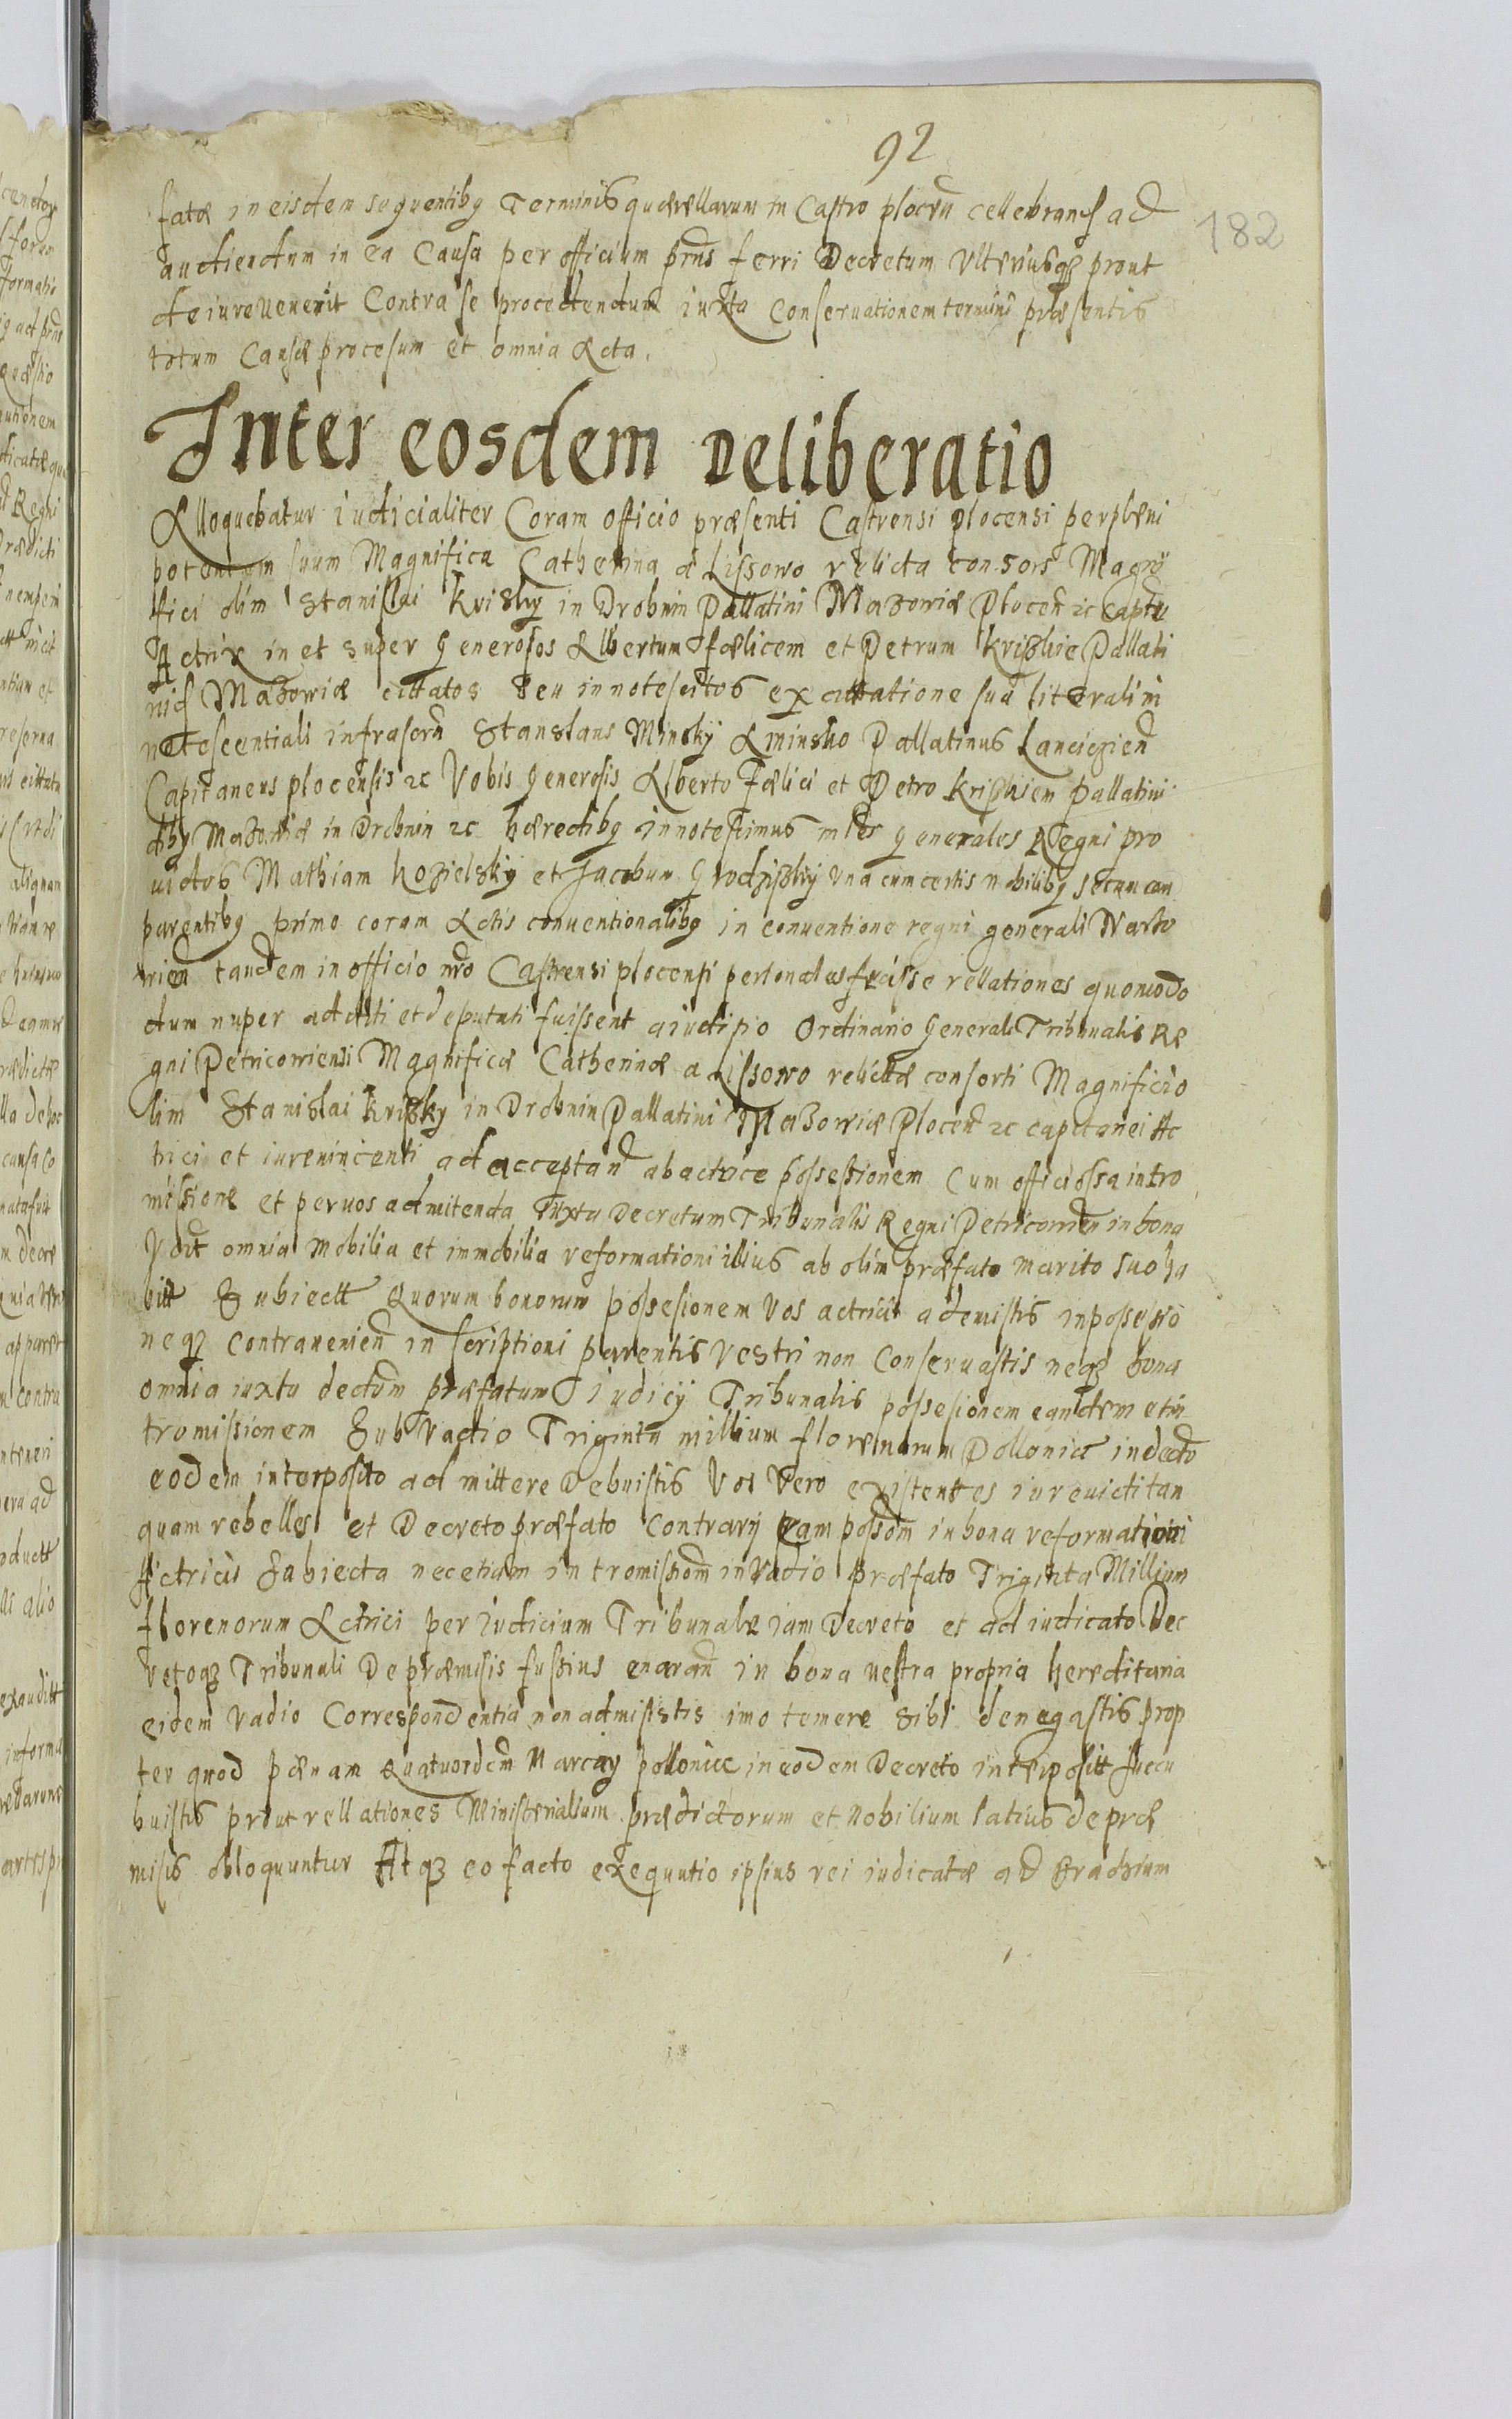 92
182
fatæ in eisdem sequentibq Terminis quærellarum in Castro plocen cellebrand ad
audiendum in ea Causa per officium prns ferri Decretum Ulteriusqз prout
de iure venerit Contra se procedendum iuxta Conseruationem termini præsentis
totum Causæ procesum et omnia Acta.
Inter eosdem Deliberatio
Alloquebatur iudicialiter Coram officio præsenti Castrensi plocensi per plæni
potentem suum Magnifica Catherina a Lissowo relicta consors Magni
fici olim Stanislai Kriski in Drobnin Pallatini Mazowiæ Plocen 2c Capta
Actrix in et super Generosos Albertum Fælicem et Petrum Kriskie Pallati
nid Mazowiæ cittatos seu innotescitos ex cittatione sua literali in
notescentiali infrascrn Stanslaus Minsky Aminsko Pallatinus Lanciczien
Capitaneus plocensis 2c Vobis Generosis Alberto Fælici et Petro Kriskiem Pallatini
dbq Mazowiæ in Drobnin 2c hæredibq innotescimus mltes generales Regni pro
uidos Mathiam Kozielsky et Jacobum Grodzisky una cum certis nobilibq secum com
parentibq primo coram Actis conuentionalibq in conuentione regni generali Warso
wien tandem in officio nro Castrensi plocensi personales fecisse rellationes quomodo
dum nuper additi et deputati fuissent a iudicio Ordinario Generali Tribunalis Re
gni Petricowiensi Magnificæ Catherinæ a Lissowo relictæ consorti Magnifici o
lim Stanislai Krisky in Drobnin Pallatini Mazowiæ Plocen 2c capitanei Ac
trici et iureuincenti ad acceptand ab actrice possessionem Cum officiossa intro
missione et per uos admitenda iuxta Decretum Tribunalis Regni Petricowien in bona
Vdit omnia Mobilia et immobilia reformationi illius ab olim præfato marito suo ha
bitt Subiectt Quorum bonorum possesionem Vos actrici ademistis in possessio
neqз contravenien inscriptioni parentis Vestri non Conseruastis neqз bona
omnia iuxta dectum præfatum iudicij Tribunalis possesionem eandem et in
tromissionem Sub Vadio Triginta millium florænorum Pollonict in decto
eodem interposito admittere Debuistis Vos Vero existentes iureuicti tan
quam rebelles et Decreto præfato Contrarij eam possom in bona reformationi
Actricis Subiecta nec etiam intromissiom in Vadio præfato Triginta Millium
florenorum Actrici per Iudicium Tribunale iam Decreto et ad iudicato Dec
retoqз Tribunali De præmisis fussius enaran in bona uestra propria hereditaria
eidem Vadio Correspondentia non admisistis imo temere sibi denegastis prop
ter quod pænam Quatuordcm Marcay pollonice in eodem Decreto interposit succu
buistis prout rellationes Ministerialium prædictorum et Nobilium latius de præ
misis obloquuntur Atqз eo facto exequutio ipsius rei iudicatæ ad Brachium